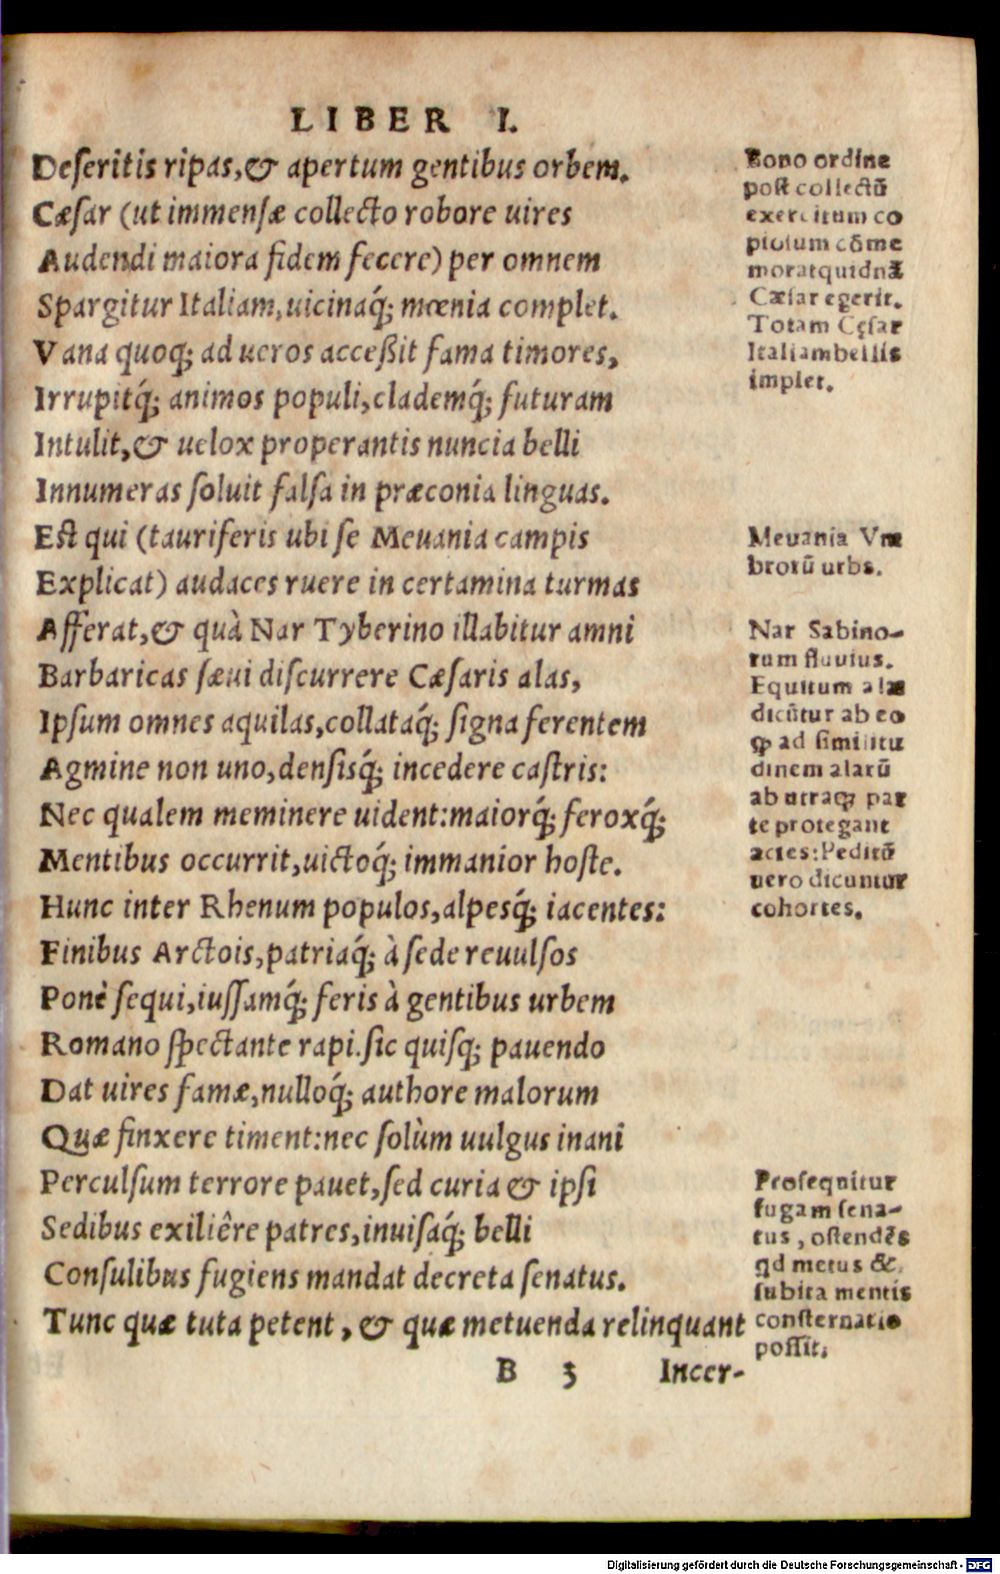 LIBER I.
Deſeritis ripas, & apertum gentibus orbem.
Cæſar (ut immenſæ collecto robore uires
Audendi maiora fidem fecere) per omnem
Spargitur Italiam, uicinaq́; mœnia complet.
Vana quoq; ad ueros acceßit fama timores,
Irrupitq́; animos populi, clademq́; futuram
Intulit, & uelox properantis nuncia belli
Innumeras ſoluit falſa in præconia linguas.
Eſt qui (tauriferis ubi ſe Meuania campis
Explicat) audaces ruere in certamina turmas
Afferat, & quà Nar Tyberino illabitur amni
Barbaricas ſæui diſcurrere Cæſaris alas,
Ipſum omnes aquilas, collataq́; ſigna ferentem
Agmine non uno, denſisq́; incedere caſtris:
Nec qualem meminere uident: maiorq́; feroxq́;
Mentibus occurrit, uictoq́; immanior hoſte.
Hunc inter Rhenum populos, alpesq́; iacentes:
Finibus Arctois, patriaq́; à ſede reuulſos
Ponè ſequi, iuſſamq́; feris à gentibus urbem
Romano ſpectante rapi. ſic quiſq; pauendo
Dat uires famæ, nulloq́; authore malorum
Quæ finxere timent: nec ſolùm uulgus inani
Perculſum terrore pauet, ſed curia & ipſi
Sedibus exiliêre patres, inuiſaq́; belli
Conſulibus fugiens mandat decreta ſenatus.
Tunc quæ tuta petent, & quæ metuenda relinquant
B 3 Incer-
Bono ordine
poſt collectū
exercitum co
pioſum cōme
morat quid nā
Cæſar egerit.
Totam Cęſar
Italiam bellis
implet.
Meuania Vm
brorū urbs.
Nar Sabino-
rum fluuius.
Equitum alæ
dicūtur ab eo
ꝙ ad ſimilitu
dinem alarū
ab utraq; par
te protegant
acies: Peditū
uero dicuntur
cohortes.
Proſequitur
fugam ſena-
tus, oſtendēs
qd metus &
ſubita mentis
conſternatio
poſſit.
Digitalisierung gefördert durch die Deutsche Forschungsgemeinschaft - DFG